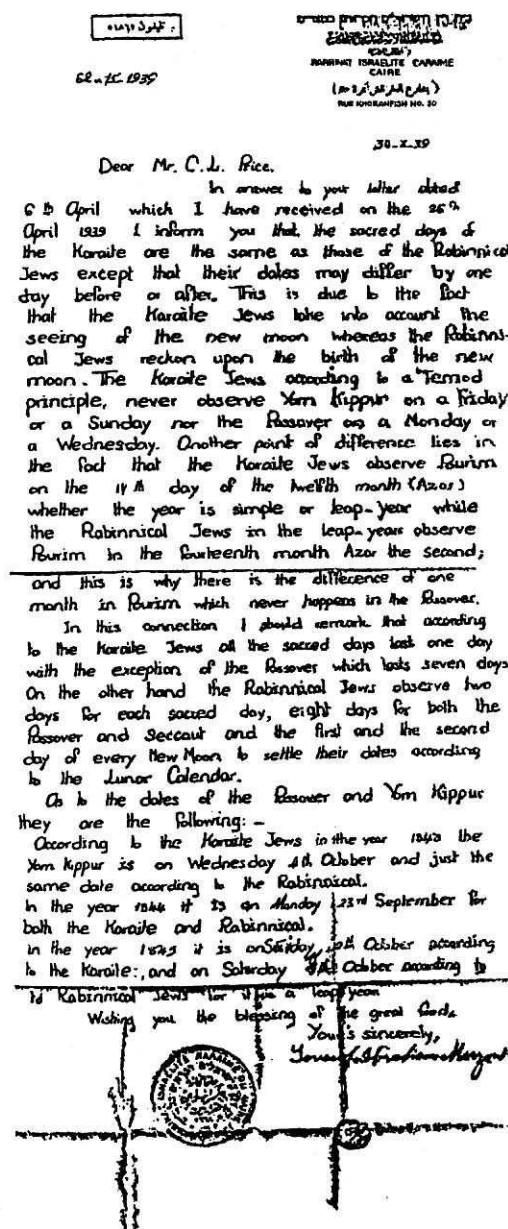 تليفون ٥١٨٦٥
1939
RABBINAT ISRAELITE CARAIME
CAIRE
RUE KHORANFISH No. 30
30-X-39
Dear Mr. C.L. Price.
In answer to your letter dated
6 th April which I have received on the 26th
April 1939 I inform you that the sacred days of
the Karaite are the same as those of the Rabinnical
Jews except that their dates may differ by one
day before or after. This is due to the fact
that the Karaite Jews take into account the
seeing of the new moon whereas the Rabinni-
cal Jews reckon upon the birth of the new
moon. The Karaite Jews according to a
principle, never observe Yom Kippur on a Friday
or a Sunday nor the Passover on a Monday or
a Wednesday. Another point of difference lies in
the fact that the Karaite Jews observe Pourim
on the 14 th day of the twelfth month (Azar)
whether the year is simple or leap-year while
the Rabinnical Jews in the leap-years observe
Pourim in the fourteenth month Azar the second;
and this is why there is the difference of one
month in Pourim which never happens in the Passover.
In this connection I should remark that according
to the Karaite Jews all the sacred days last one day
with the exception of the Passover which lasts seven days
On the other hand the Rabinnical Jews observe two
days for each sacred day, eight days for both the
Passover and Seccaut and the first and the second
day of every New Moon to settle their dates according
to the Lunar Calendar.
As to the dates of the Passover and Yom Kippur
they are the following: -
According to the Karaite Jews in the year 1843 the
Yom Kippur is on Wednesday 4th October and just the
same date according to the Rabinnical.
In the year 1844 it is on Monday 23rd September for
both the Karaite and Rabinnical.
in the year 1845 it is on October according
to the Karaite:, and on Saturday October according to
Rabinnical Jews for it is a leap year
Wishing you the blessing of the great God.
Your's sincerely,